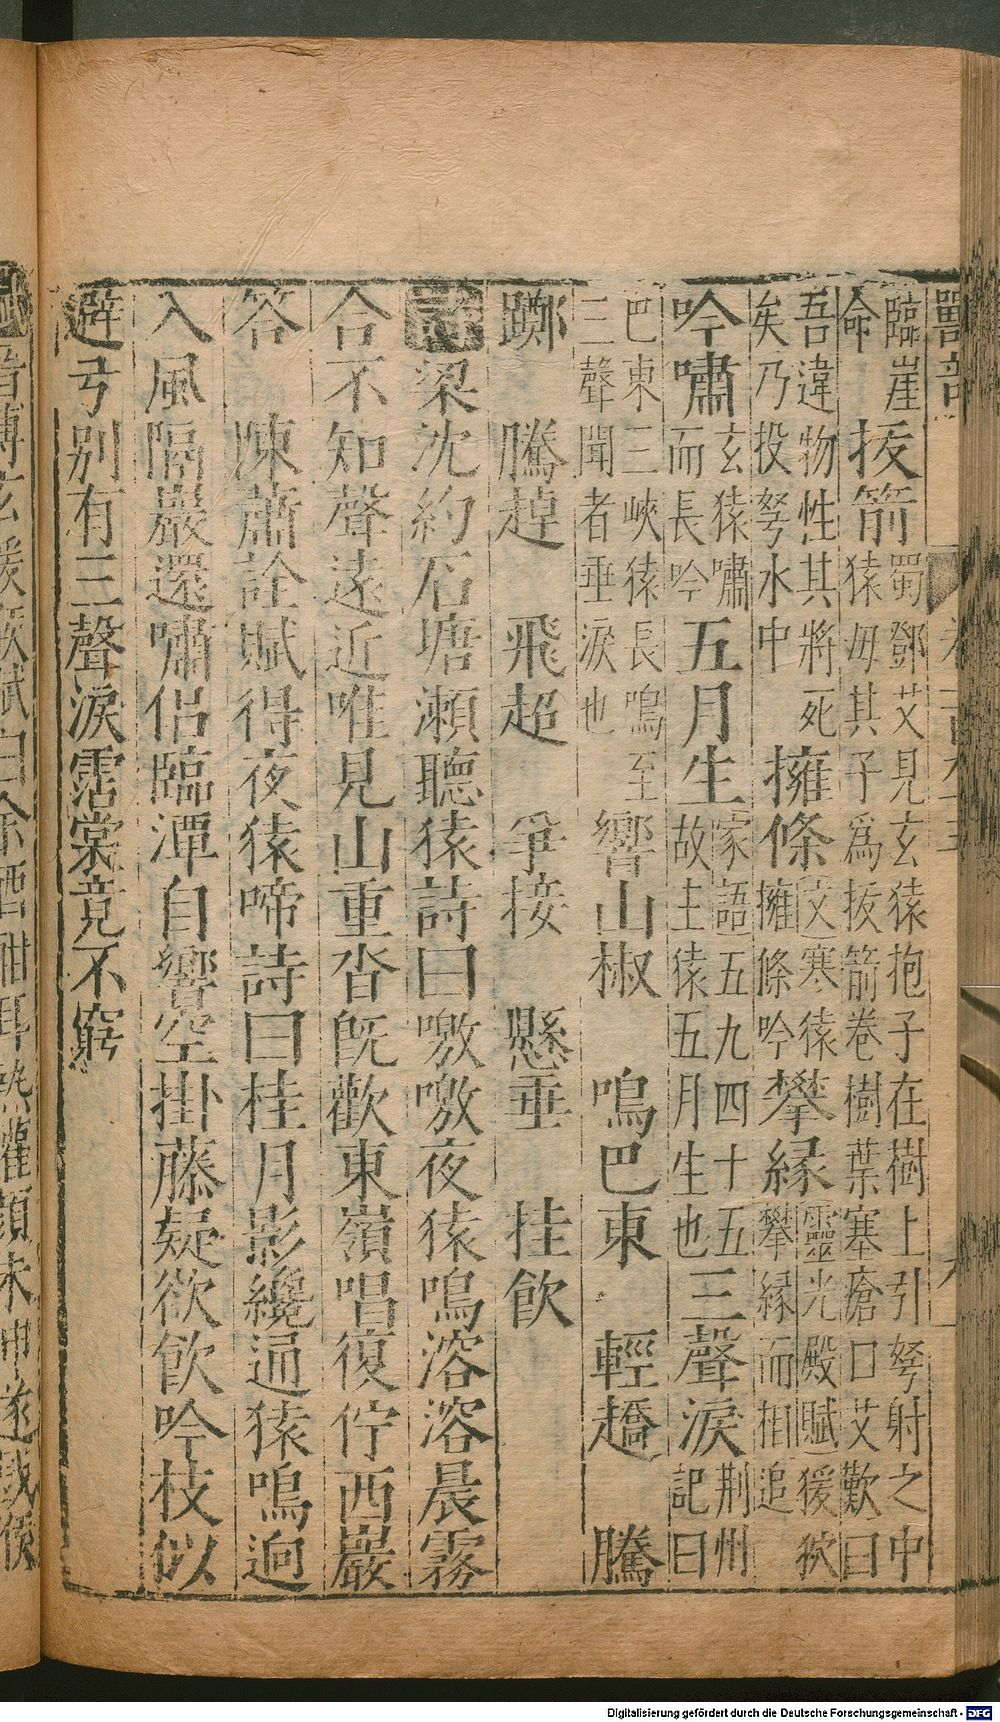 獸部
臨崖
命
拔箭
蜀鄧艾見玄猿抱子在樹上引弩射之中
猿母其子為拔箭卷樹葉塞瘡口艾歎曰
吾違物性其將死
矣乃投弩水中
擁條
文寒猿
擁條吟
攀緣
靈光殿賦猨狖
攀緣而相追
吟嘯
玄猿嘯
而長吟
五月生
家語五九四十五
故主猿五月生也
三聲淚
荊州
記曰
巴東三峽猿長鳴至
三聲聞者垂淚也
響山椒 鳴巴東 輕趫 騰
躑 騰趠 飛超 爭接 懸垂 挂飲
詩梁沈約石塘瀨聽猿詩曰噭噭夜猿鳴溶溶晨霧
合不知聲遠近唯見山重沓既歡東嶺唱復佇西巖
答 陳蕭詮賦得夜猿啼詩曰桂月影纔通猿鳴迥
入風隔巖還嘯侶臨潭自響空掛藤疑欲飲吟枝似
避弓別有三聲淚霑裳竟不窮
Digitalisierung gefördert durch die Deutsche Forschungsgemeinschaft - DFG